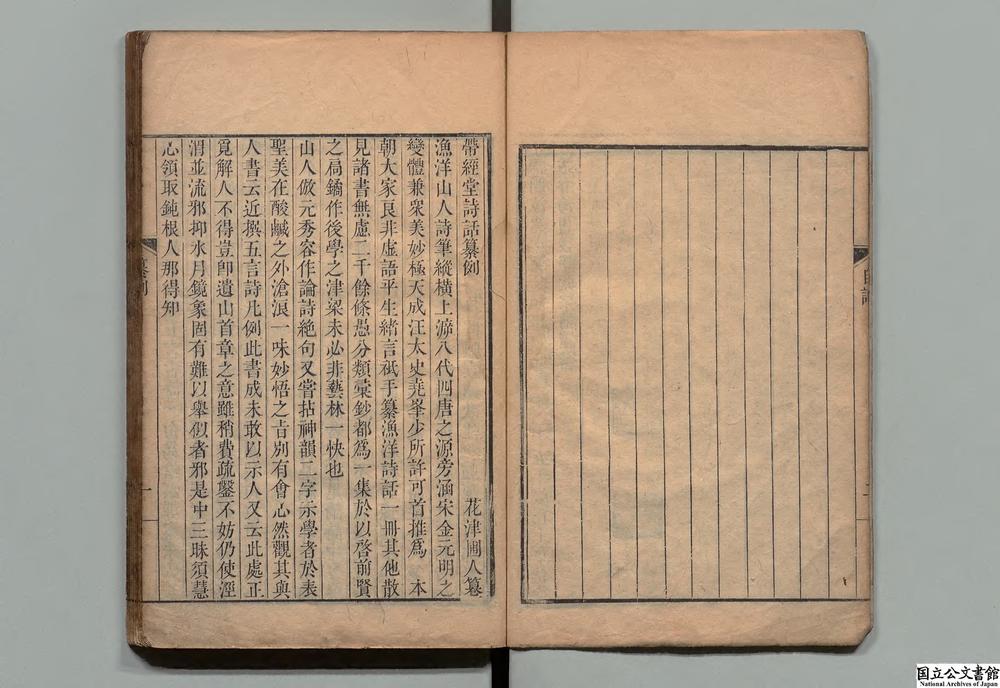 帶經堂詩話纂例
花津圃人纂
漁洋山人詩筆縱橫上遡八代四唐之源旁涵宋金元明之
變體兼衆美妙極天成汪太史堯峯少所許可首推爲 本
朝大家良非虛語平生緒言祇手纂漁洋詩話一冊其他散
見諸書無慮二千餘條愚分類彙鈔都爲一集於以啓前賢
之扃鐍作後學之津梁未必非藝林一快也
山人倣元秀容作論詩絶句又嘗拈神韻二字示學者於表
聖美在酸鹹之外滄浪一味妙悟之旨別有會心然觀其與
人書云近撰五言詩凡例此書成未敢以示人又云此處正
覓解人不得豈卽遺山首章之意雖稍費疏鑿不妨仍使涇
渭並流邪抑水月鏡象固有難以舉似者邪是中三昧須慧
心領取鈍根人那得知
纂例
一
國立公文書館
National Archives of Japan